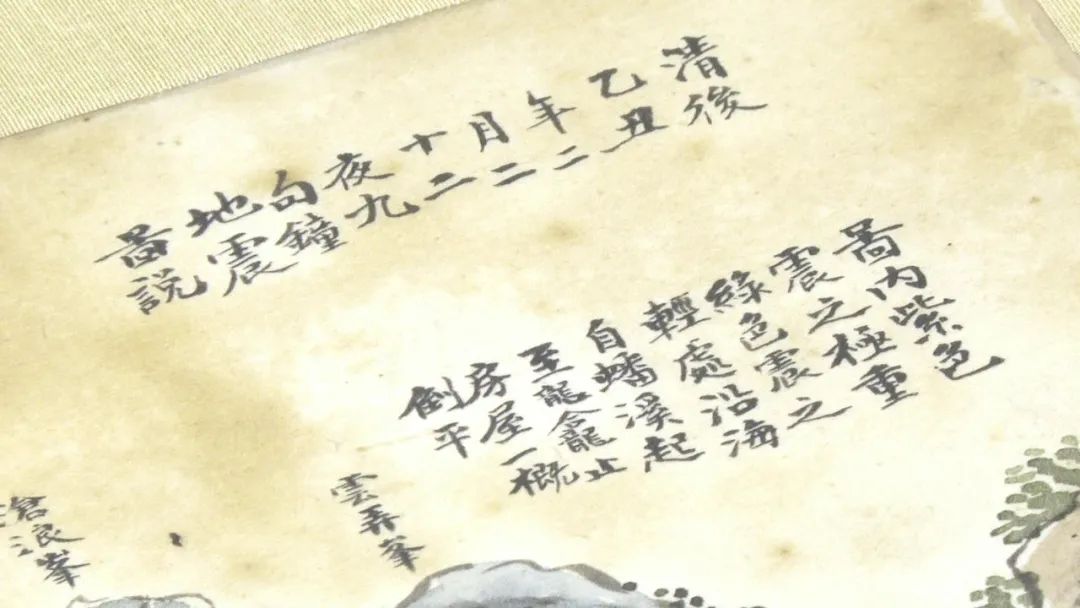 清後
乙丑
年二
月二
十二
夜九
句鐘
地震
啚說
啚內紫色
震之極重
綠色震之
輕處沿海
自蟠溪起
至龍龕止
房屋一概
倒平
雲弄峯
滄浪峯